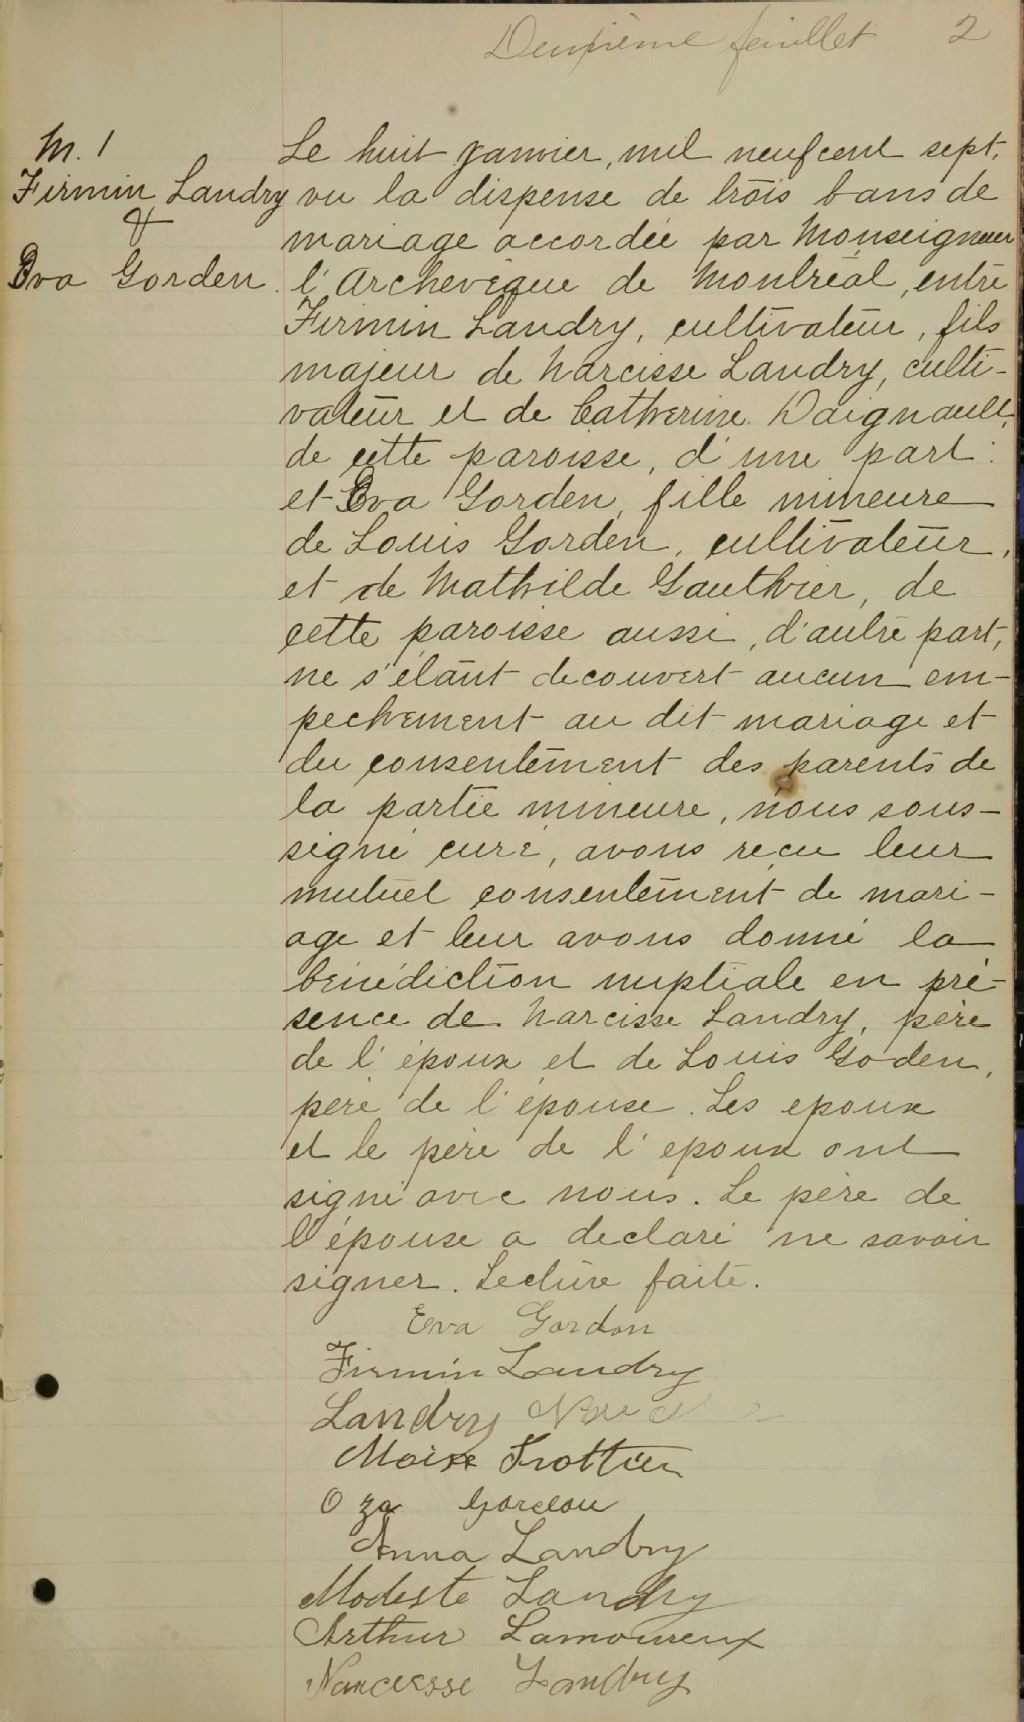 Deuxième feuillet 2
M. 1
Firmin Landry
&
Eva Gorden
Le huit janvier, mil neuf cent sept,
vu la dispense de trois bans de
mariage accordée par Monseigneur
l'Archevêque de Montréal, entre
Firmin Landry, cultivateur, fils
majeur de Narcisse Landry, culti-
vateur et de Catherine Daignault,
de cette paroisse, d'une part:
et Eva Gorden, fille mineure
de Louis Gorden, cultivateur,
et de Mathilde Gauthier, de
cette paroisse aussi, d'autre part,
ne s'étant decouvert aucun em-
pechement au dit mariage et
du consentement des parents de
la partie mineure, nous sous-
signé curé, avons reçu leur
mutuel consentement de mari-
age et leur avons donné la
bénédiction nuptiale en pré-
sence de Narcisse Landry, père
de l'époux et de Louis Goden,
père de l'épouse. Les epoux
et le père de l'epoux ont
signé avec nous. Le père de
l'épouse a declaré ne savoir
signer. Lecture faite.
Eva Gordon
Firmin Landry
Landry
Moise Trottier
Oza
Anna Landry
Modeste Landry
Arthur Lamoureux
Narcersse Landry